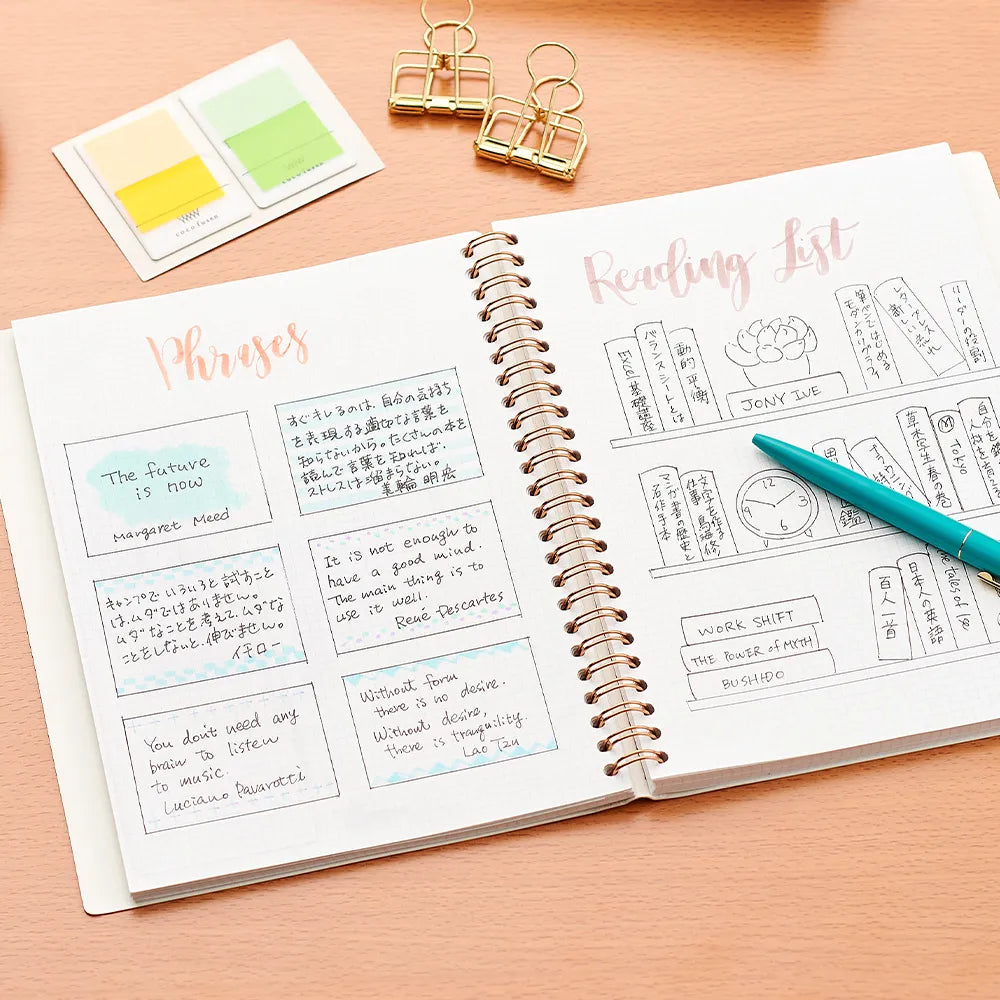 cocofusen
cocofusen
Phrases
The future
is now
Margaret Meed
すぐキレるのは、自分の気持ち
を表現する適切な言葉を
知らないから。たくさんの本を
読んで言葉を知れば、
ストレスは溜まらない。
美輪 明宏
キャンプでいろいろと試すこと
は、ムダではありません。
ムダなことを考えて、ムダな
ことをしないと、伸びません。
イチロー
It is not enough to
have a good mind.
The main thing is to
use it well.
René Descartes
You don't need any
brain to listen
to music.
Luciano Pavarotti
Without form
there is no desire.
Without desire,
there is tranquility.
Lao Tzu
Reading List
Excel基礎講座
バランスシートとは
動的平衡
JONY IVE
筆ペンではじめる
モダンカリグラフィ
レタリングスの
新しい流れ
リーダーの役割
マンガ古書の歴史と
名作手本
文字を作る
仕事 鳥海修
12
3
6
9
図鑑
草木学生春の巻
Tokyo
自分を鍛え
人材を育
WORK SHIFT
THE POWER of MYTH
BUSHIDO
百人一首
日本人の英語
the tales of